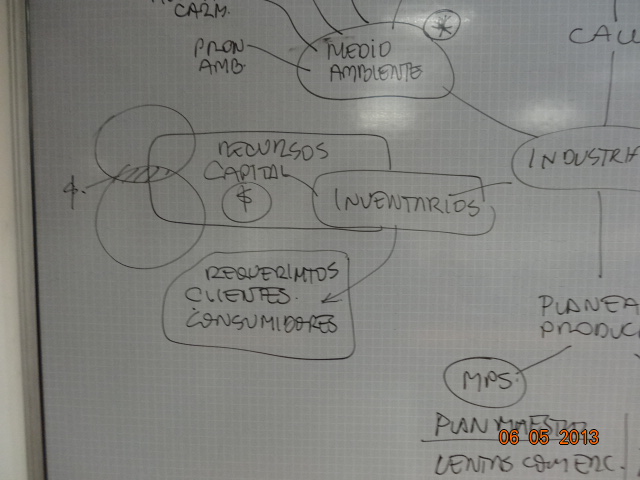 CARM.
CAL
PRON
AMB.
MEDIO
AMBIENTE
*
INDUSTRIA
RECURSOS
CAPITAL
$
$.
INVENTARIOS
REQUERIMTOS
CLIENTES.
CONSUMIDORES
PLANEA
PRODUC
MPS.
PLAN MAESTRO
06 05 2013
VENTAS COMERC.